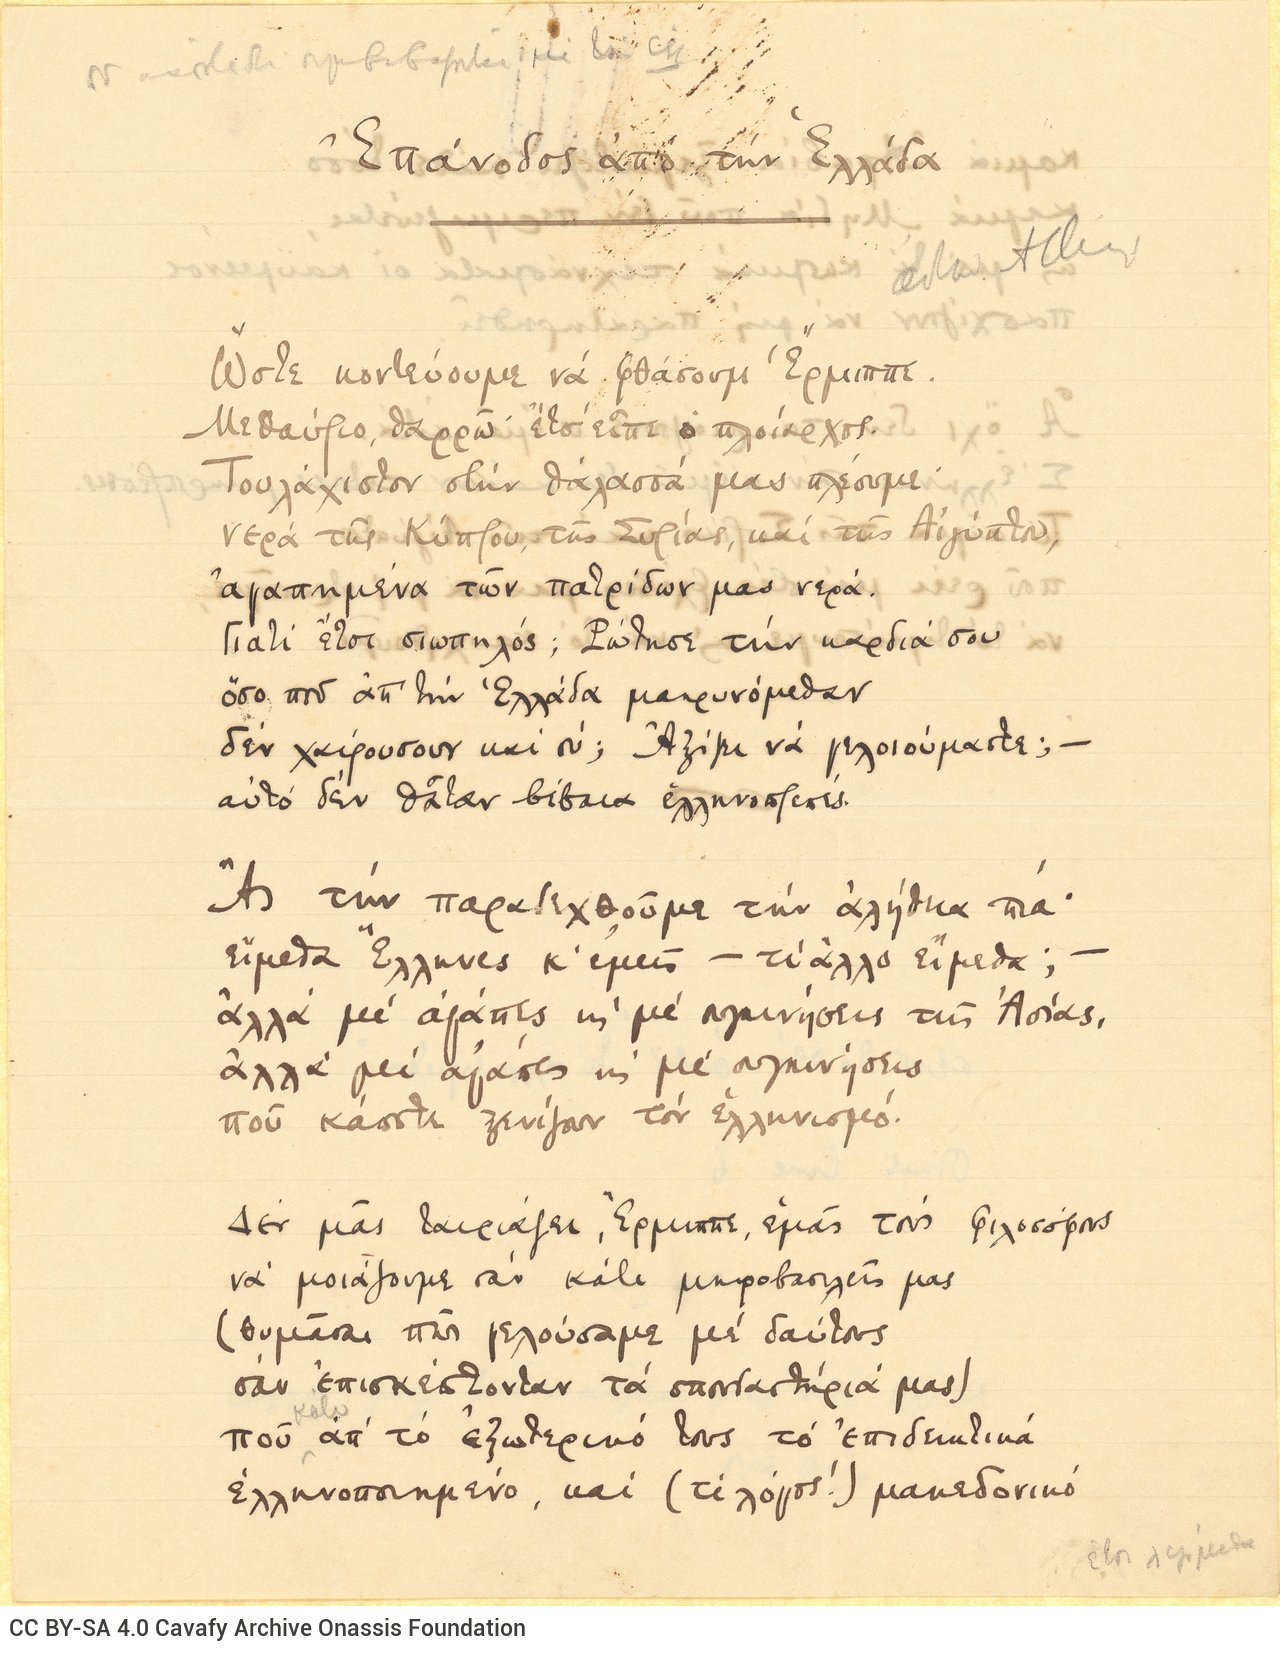 Ἐπάνοδος ἀπό τήν Ἑλλάδα
Ὥστε κοντεύουμε νά φθάσουμ' Ἕρμιππε.
Μεθαύριο, θαρρῶ· ἔτσ' εἶπε ὁ πλοίαρχος.
Τουλάχιστον στήν θάλασσά μας πλέουμε·
νερά τῆς Κύπρου, τῆς Συρίας, καί τῆς Αἰγύπτου,
ἀγαπημένα τῶν πατρίδων μας νερά.
Γιατί ἔτσι σιωπηλός; Ρώτησε τήν καρδιά σου
ὅσο πού ἀπ' τήν Ἑλλάδα μακρυνόμεθαν
δέν χαίροσουν καί σύ; Ἀξίζει νά γελοιούμαστε; —
αὐτό δέν θἆταν βέβαια ἑλληνοπρεπές.
Ἄς τήν παραδεχθοῦμε τήν ἀλήθεια πιά·
εἴμεθα Ἕλληνες κ' ἐμεῖς — τί ἄλλο εἴμεθα; —
ἀλλά μέ ἀγάπες κι μέ συγκινήσεις τῆς Ἀσίας,
ἀλλά μέ ἀγάπες κι μέ συγκινήσεις
πού κάποτε ξενίζουν τόν ἑλληνισμό.
Δέν μᾶς ταιριάζει, Ἕρμιππε, ἐμᾶς τούς φιλοσόφους
νά μοιάζουμε σάν κάτι μικροβασιλεῖς μας
(θυμᾶσαι πῶς γελούσαμε μέ δαύτους
σάν ἐπισκέπτονταν τά σπουδαστήριά μας)
κάτω
πού ἀπ' τό ἐξωτερικό τους τό ἐπιδεικτικά
ἑλληνοποιημένο, καί (τί λόγος!) μακεδονικό
CC BY-SA 4.0 Cavafy Archive Onassis Foundation